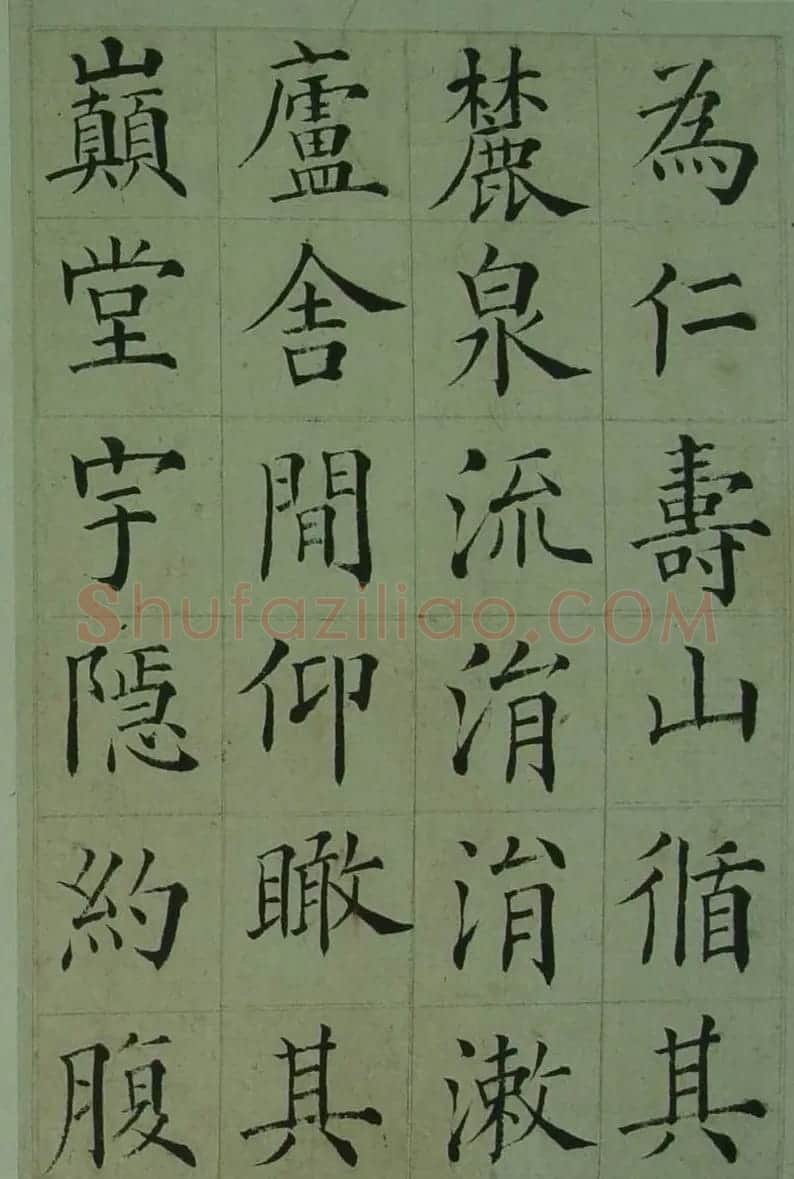 為仁壽山循其
麓泉流涓涓漱
廬舍間仰瞰其
巔堂宇隱約腹
Shufaziliao.COM